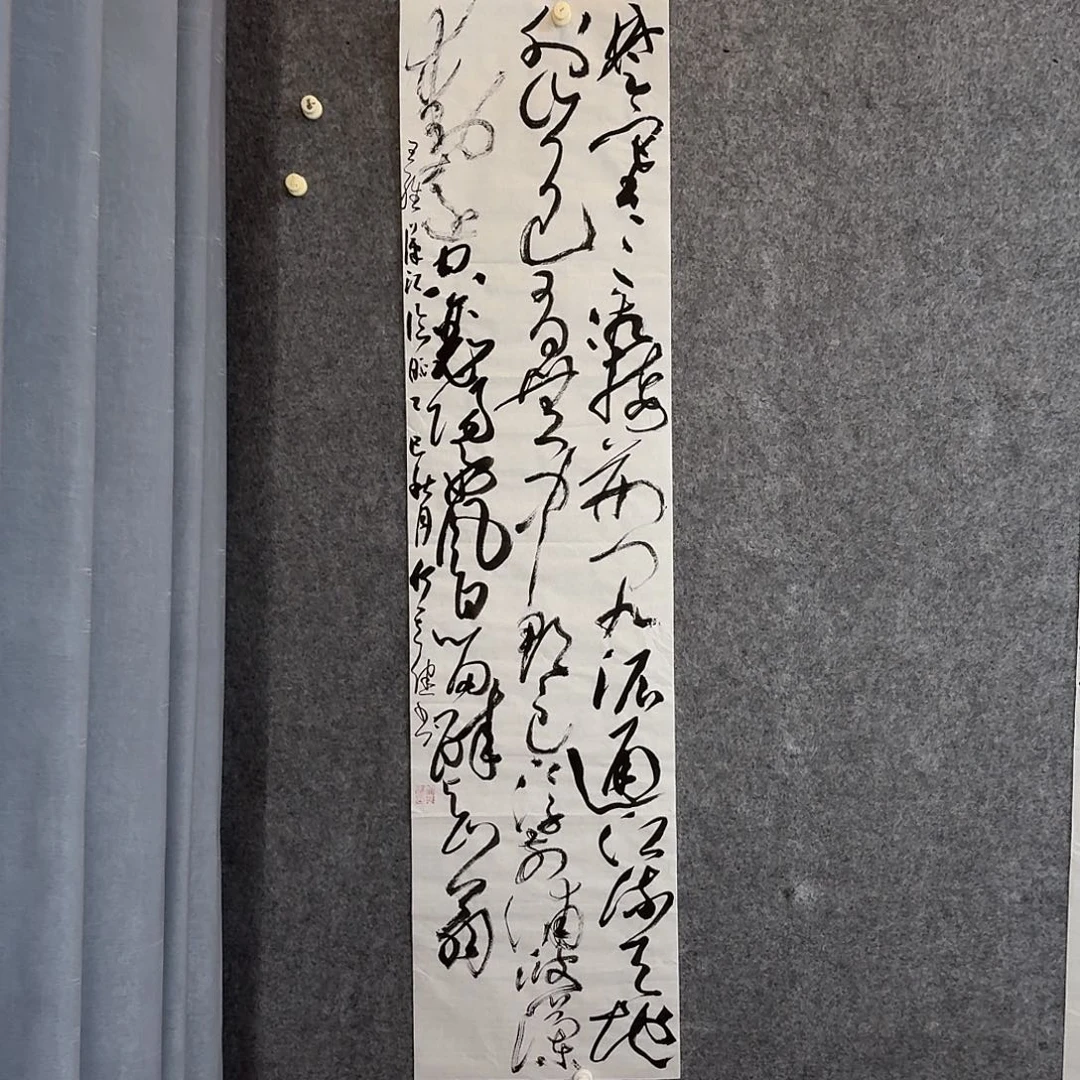 楚塞三湘接荆门九派通江流天地
外山色有無中郡邑浮前浦波瀾
動遠空襄陽好風日留醉与山翁
王維漢江临眺乙巳秋月健书